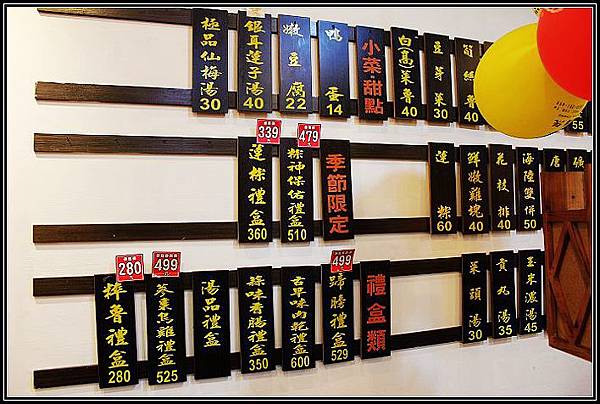 筍絲魯
豆芽菜 30
白(高)菜魯 40
小菜甜點
鴨蛋 14
嫩豆腐 22
銀耳蓮子湯 40
極品仙梅湯 30
55
海陸雙拼 50
花枝排 40
鮮嫩雞塊 40
蓮粽 60
季節限定
粽神保佑禮盒 510
479
蓮粽禮盒 360
339
玉米濃湯 45
貢丸湯 35
菜頭湯 30
禮盒類
蹄膀禮盒 529
499
古早味肉乾禮盒 600
蒜味香腸禮盒 350
湯品禮盒
525
499
魯禮盒 280
280